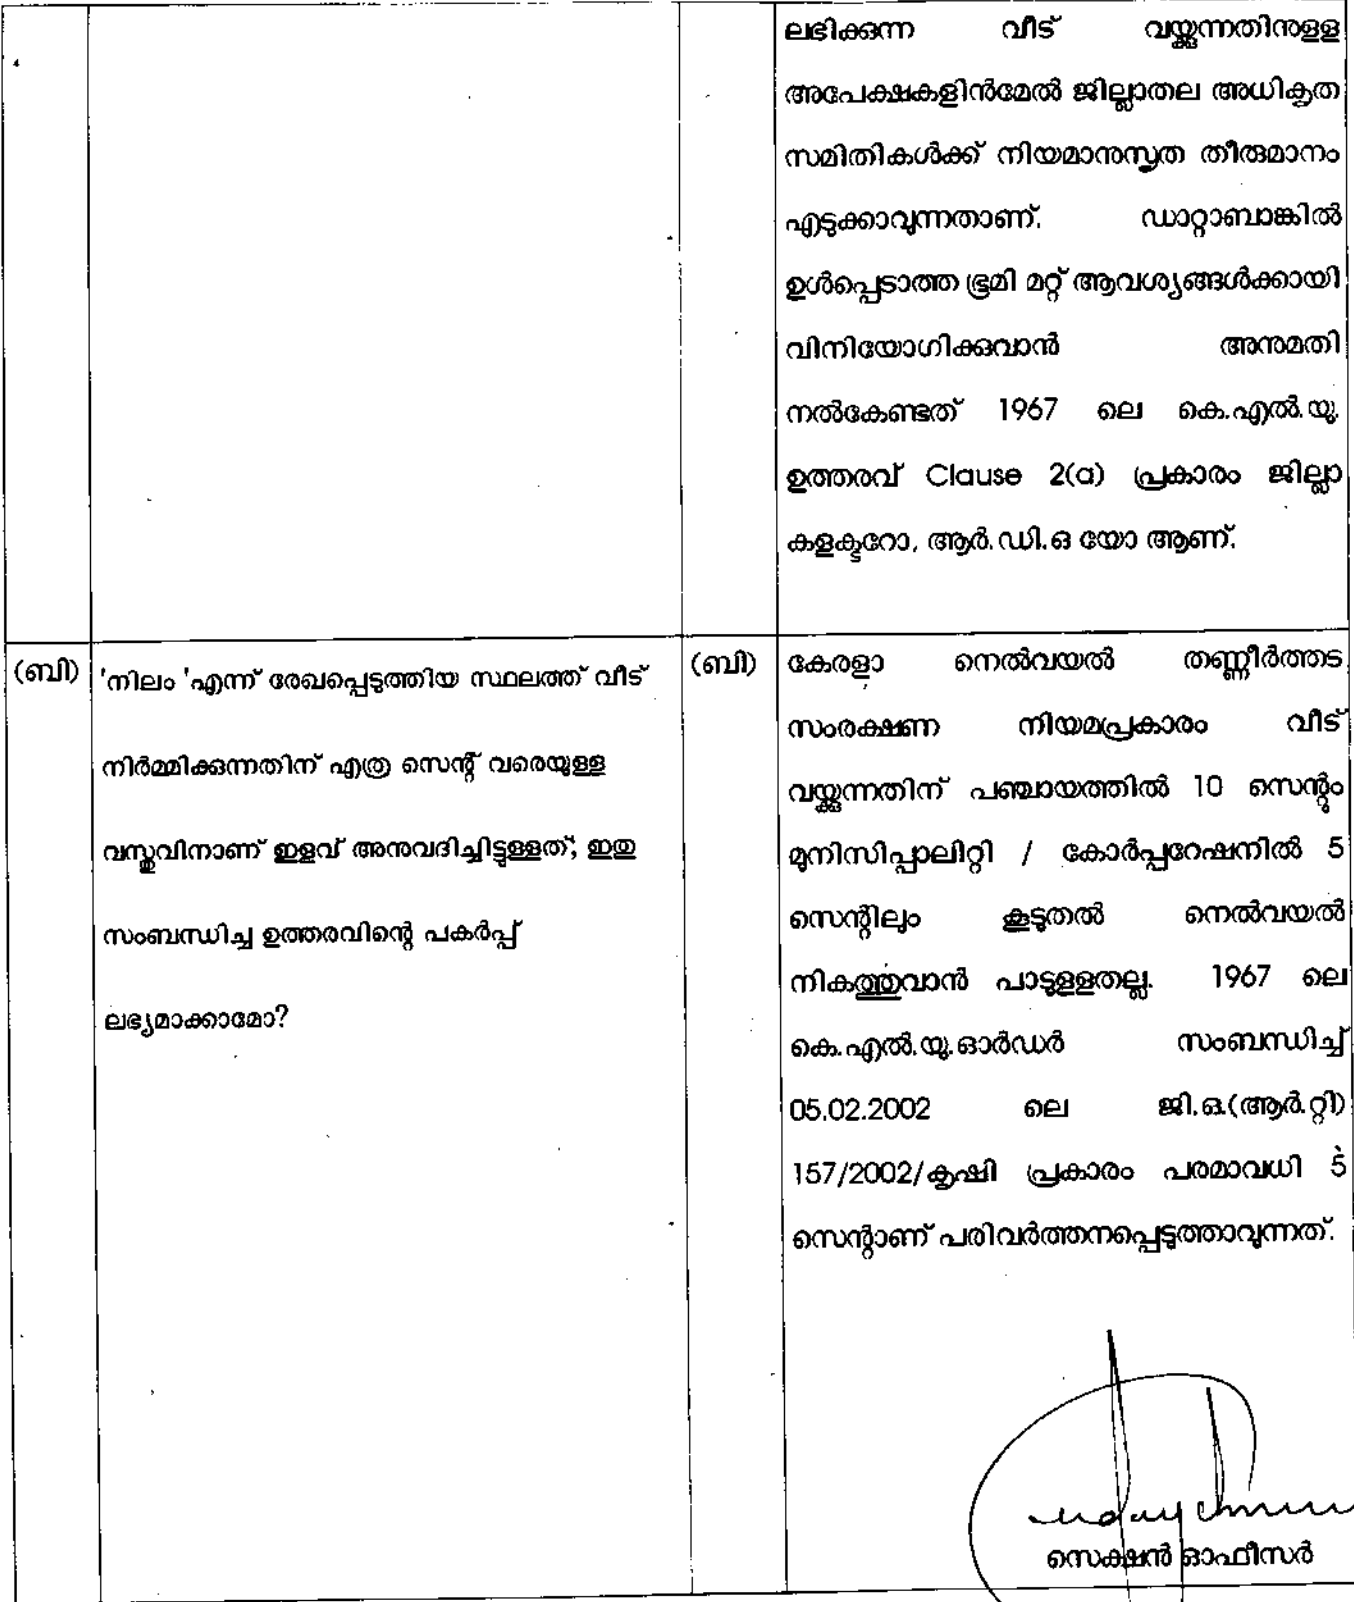 ലഭിക്കുന്ന വീട് വയ്ക്കുന്നതിനുളള
അപേക്ഷകളിൻമേൽ ജില്ലാതല അധികൃത
സമിതികൾക്ക് നിയമാനുസൃത തീരുമാനം
എടുക്കാവുന്നതാണ്. ഡാറ്റാബാങ്കിൽ
ഉൾപ്പെടാത്ത ഭൂമി മറ്റ് ആവശ്യങ്ങൾക്കായി
വിനിയോഗിക്കുവാൻ അനുമതി
നൽകേണ്ടത് 1967 ലെ കെ.എൽ.യു.
ഉത്തരവ് Clause 2(a) പ്രകാരം ജില്ലാ
കളക്ടറോ, ആർ.ഡി.ഒ യോ ആണ്.
(ബി) 'നിലം 'എന്ന് രേഖപ്പെടുത്തിയ സ്ഥലത്ത് വീട്
നിർമ്മിക്കുന്നതിന് എത്ര സെന്റ് വരെയുള്ള
വസ്തുവിനാണ് ഇളവ് അനുവദിച്ചിട്ടുള്ളത്; ഇതു
സംബന്ധിച്ച ഉത്തരവിന്റെ പകർപ്പ്
ലഭ്യമാക്കാമോ?
(ബി) കേരളാ നെൽവയൽ തണ്ണീർത്തട
സംരക്ഷണ നിയമപ്രകാരം വീട്
വയ്ക്കുന്നതിന് പഞ്ചായത്തിൽ 10 സെന്റും
മുനിസിപ്പാലിറ്റി / കോർപ്പറേഷനിൽ 5
സെന്റിലും കൂടുതൽ നെൽവയൽ
നികത്തുവാൻ പാടുളളതല്ല. 1967 ലെ
കെ.എൽ.യു.ഓർഡർ സംബന്ധിച്ച്
05.02.2002 ലെ ജി.ഒ.(ആർ.റ്റി)
157/2002/കൃഷി പ്രകാരം പരമാവധി 5
സെന്റാണ് പരിവർത്തനപ്പെടുത്താവുന്നത്.
സെക്ഷൻ ഓഫീസർ